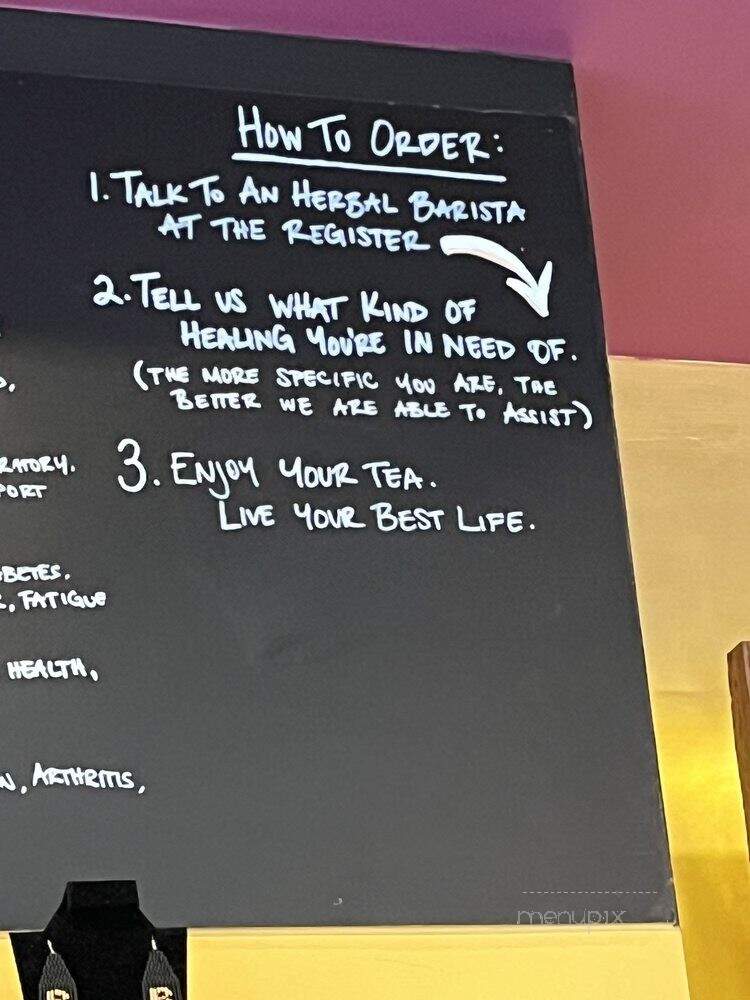 HOW TO ORDER:
1. TALK TO AN HERBAL BARISTA
AT THE REGISTER
2. TELL US WHAT KIND OF
HEALING YOU'RE IN NEED OF.
(THE MORE SPECIFIC YOU ARE, THE
BETTER WE ARE ABLE TO ASSIST)
3. ENJOY YOUR TEA.
LIVE YOUR BEST LIFE.
RATORY.
PORT
BETES.
, FATIGUE
HEALTH,
, ARTHRITIS,
menupix